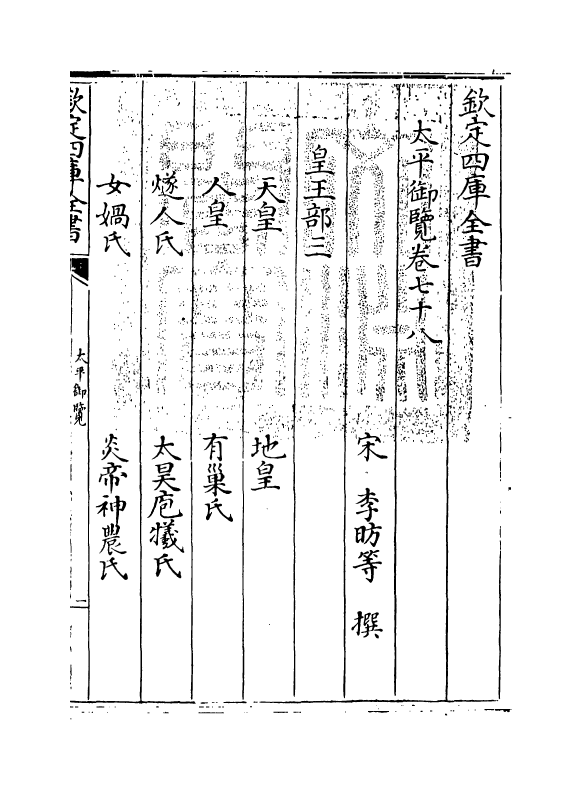 欽定四庫全書
太平御覽卷七十八
宋 李昉等 撰
皇王部三
天皇 地皇
人皇 有巢氏
燧人氏 太昊庖犧氏
女媧氏 炎帝神農氏
欽定四庫全書
太平御覽